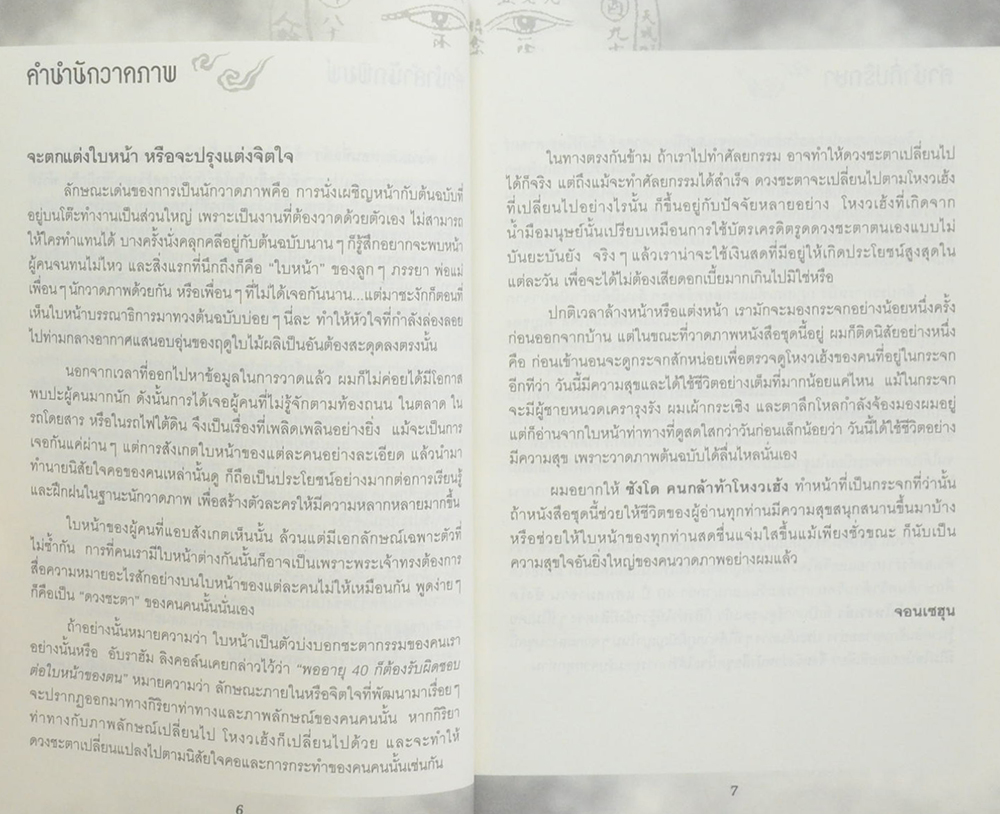 คำนำนักวาดภาพ
จะตกแต่งใบหน้า หรือจะปรุงแต่งจิตใจ
ลักษณะเด่นของการเป็นนักวาดภาพคือ การนั่งเผชิญหน้ากับต้นฉบับที่
อยู่บนโต๊ะทำงานเป็นส่วนใหญ่ เพราะเป็นงานที่ต้องวาดด้วยตัวเอง ไม่สามารถ
ให้ใครทำแทนได้ บางครั้งนั่งคลุกคลีอยู่กับต้นฉบับนาน ๆ ก็รู้สึกอยากจะพบหน้า
ผู้คนจนทนไม่ไหว และสิ่งแรกที่นึกถึงก็คือ “ใบหน้า” ของลูก ๆ ภรรยา พ่อแม่
เพื่อน ๆ นักวาดภาพด้วยกัน หรือเพื่อน ๆ ที่ไม่ได้เจอกันนาน...แต่มาชะงักก็ตอนที่
เห็นใบหน้าบรรณาธิการมาทวงต้นฉบับบ่อย ๆ นี่ละ ทำให้หัวใจที่กำลังล่องลอย
ไปท่ามกลางอากาศแสนอบอุ่นของฤดูใบไม้ผลิเป็นอันต้องสะดุดลงตรงนั้น
นอกจากเวลาที่ออกไปหาข้อมูลในการวาดแล้ว ผมก็ไม่ค่อยได้มีโอกาส
พบปะผู้คนมากนัก ดังนั้นการได้เจอผู้คนที่ไม่รู้จักตามท้องถนน ในตลาด ใน
รถโดยสาร หรือในรถไฟใต้ดิน จึงเป็นเรื่องที่เพลิดเพลินอย่างยิ่ง แม้จะเป็นการ
เจอกันแค่ผ่าน ๆ แต่การสังเกตใบหน้าของแต่ละคนอย่างละเอียด แล้วนำมา
ทำนายนิสัยใจคอของคนเหล่านั้นดู ก็ถือเป็นประโยชน์อย่างมากต่อการเรียนรู้
และฝึกฝนในฐานะนักวาดภาพ เพื่อสร้างตัวละครให้มีความหลากหลายมากขึ้น
ใบหน้าของผู้คนที่แอบสังเกตเห็นนั้น ล้วนแต่มีเอกลักษณ์เฉพาะตัวที่
ไม่ซ้ำกัน การที่คนเรามีใบหน้าต่างกันนั้นก็อาจเป็นเพราะพระเจ้าทรงต้องการ
สื่อความหมายอะไรสักอย่างบนใบหน้าของแต่ละคนไม่ให้เหมือนกัน พูดง่าย ๆ
ก็คือเป็น “ดวงชะตา” ของคนคนนั้นนั่นเอง
ถ้าอย่างนั้นหมายความว่า ใบหน้าเป็นตัวบ่งบอกชะตากรรมของคนเรา
อย่างนั้นหรือ อับราฮัม ลิงคอล์นเคยกล่าวไว้ว่า “พออายุ 40 ก็ต้องรับผิดชอบ
ต่อใบหน้าของตน” หมายความว่า ลักษณะภายในหรือจิตใจที่พัฒนามาเรื่อย ๆ
จะปรากฏออกมาทางกิริยาท่าทางและภาพลักษณ์ของคนคนนั้น หากกิริยา
ท่าทางกับภาพลักษณ์เปลี่ยนไป โหงวเฮ้งก็เปลี่ยนไปด้วย และจะทำให้
ดวงชะตาเปลี่ยนแปลงไปตามนิสัยใจคอและการกระทำของคนคนนั้นเช่นกัน
6
ในทางตรงกันข้าม ถ้าเราไปทำศัลยกรรม อาจทำให้ดวงชะตาเปลี่ยนไป
ได้ก็จริง แต่ถึงแม้จะทำศัลยกรรมได้สำเร็จ ดวงชะตาจะเปลี่ยนไปตามโหงวเฮ้ง
ที่เปลี่ยนไปอย่างไรนั้น ก็ขึ้นอยู่กับปัจจัยหลายอย่าง โหงวเฮ้งที่เกิดจาก
น้ำมือมนุษย์นั้นเปรียบเหมือนการใช้บัตรเครดิตรูดดวงชะตาตนเองแบบไม่
บันยะบันยัง จริง ๆ แล้วเราน่าจะใช้เงินสดที่มีอยู่ให้เกิดประโยชน์สูงสุดใน
แต่ละวัน เพื่อจะได้ไม่ต้องเสียดอกเบี้ยมากเกินไปมิใช่หรือ
ปกติเวลาล้างหน้าหรือแต่งหน้า เรามักจะมองกระจกอย่างน้อยหนึ่งครั้ง
ก่อนออกจากบ้าน แต่ในขณะที่วาดภาพหนังสือชุดนี้อยู่ ผมก็ติดนิสัยอย่างหนึ่ง
คือ ก่อนเข้านอนจะดูกระจกสักหน่อยเพื่อตรวจดูโหงวเฮ้งของคนที่อยู่ในกระจก
อีกทีว่า วันนี้มีความสุขและได้ใช้ชีวิตอย่างเต็มที่มากน้อยแค่ไหน แม้ในกระจก
จะมีผู้ชายหนวดเครารุงรัง ผมเผ้ากระเซิง และตาลึกโหลกำลังจ้องมองผมอยู่
แต่ก็อ่านจากใบหน้าท่าทางที่ดูสดใสกว่าวันก่อนเล็กน้อยว่า วันนี้ได้ใช้ชีวิตอย่าง
มีความสุข เพราะวาดภาพต้นฉบับได้ลื่นไหลนั่นเอง
ผมอยากให้ ซังโด คนกล้าท้าโหงวเฮ้ง ทำหน้าที่เป็นกระจกที่ว่านั้น
ถ้าหนังสือชุดนี้ช่วยให้ชีวิตของผู้อ่านทุกท่านมีความสุขสนุกสนานขึ้นมาบ้าง
หรือช่วยให้ใบหน้าของทุกท่านสดชื่นแจ่มใสขึ้นแม้เพียงชั่วขณะ ก็นับเป็น
ความสุขใจอันยิ่งใหญ่ของคนวาดภาพอย่างผมแล้ว
จอนเซฮุน
7